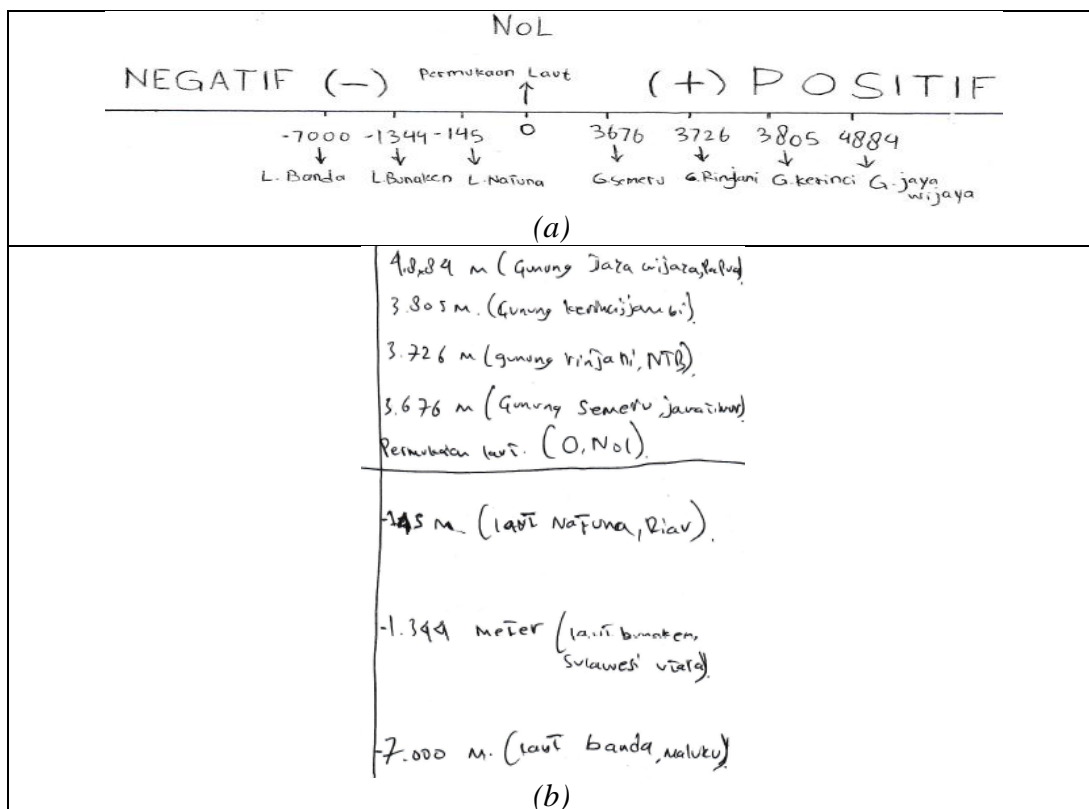 NOL
NEGATIF (-) Permukaan Laut (+) POSITIF
-7000 -1344 -145 0 3676 3726 3805 4884
L. Banda L.Bunaken L.Natuna G.semeru G.Rinjani G.kerinci G.jaya
wijaya
(a)
4.884 m (Gunung Jaya wijaya, Papua)
3.805 m. (Gunung kerinci, jambi)
3.726 m (gunung rinjani, NTB).
3.676 m (Gunung Semeru, jawa timur)
Permukaan laut. (0, Nol).
-145 m (laut Natuna, Riau).
-1.344 meter (laut bunaken,
Sulawesi utara).
-7.000 m. (laut banda, maluku)
(b)